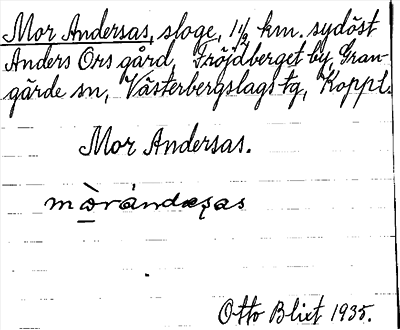 Mor Andersas, sloge, 1½ km. sydöst
Anders Ors gård, Fröjdberget by, Gran-
gärde sn, Västerbergslags tg, Koppl.
Mor Andersas.
Otto Blixt 1935.